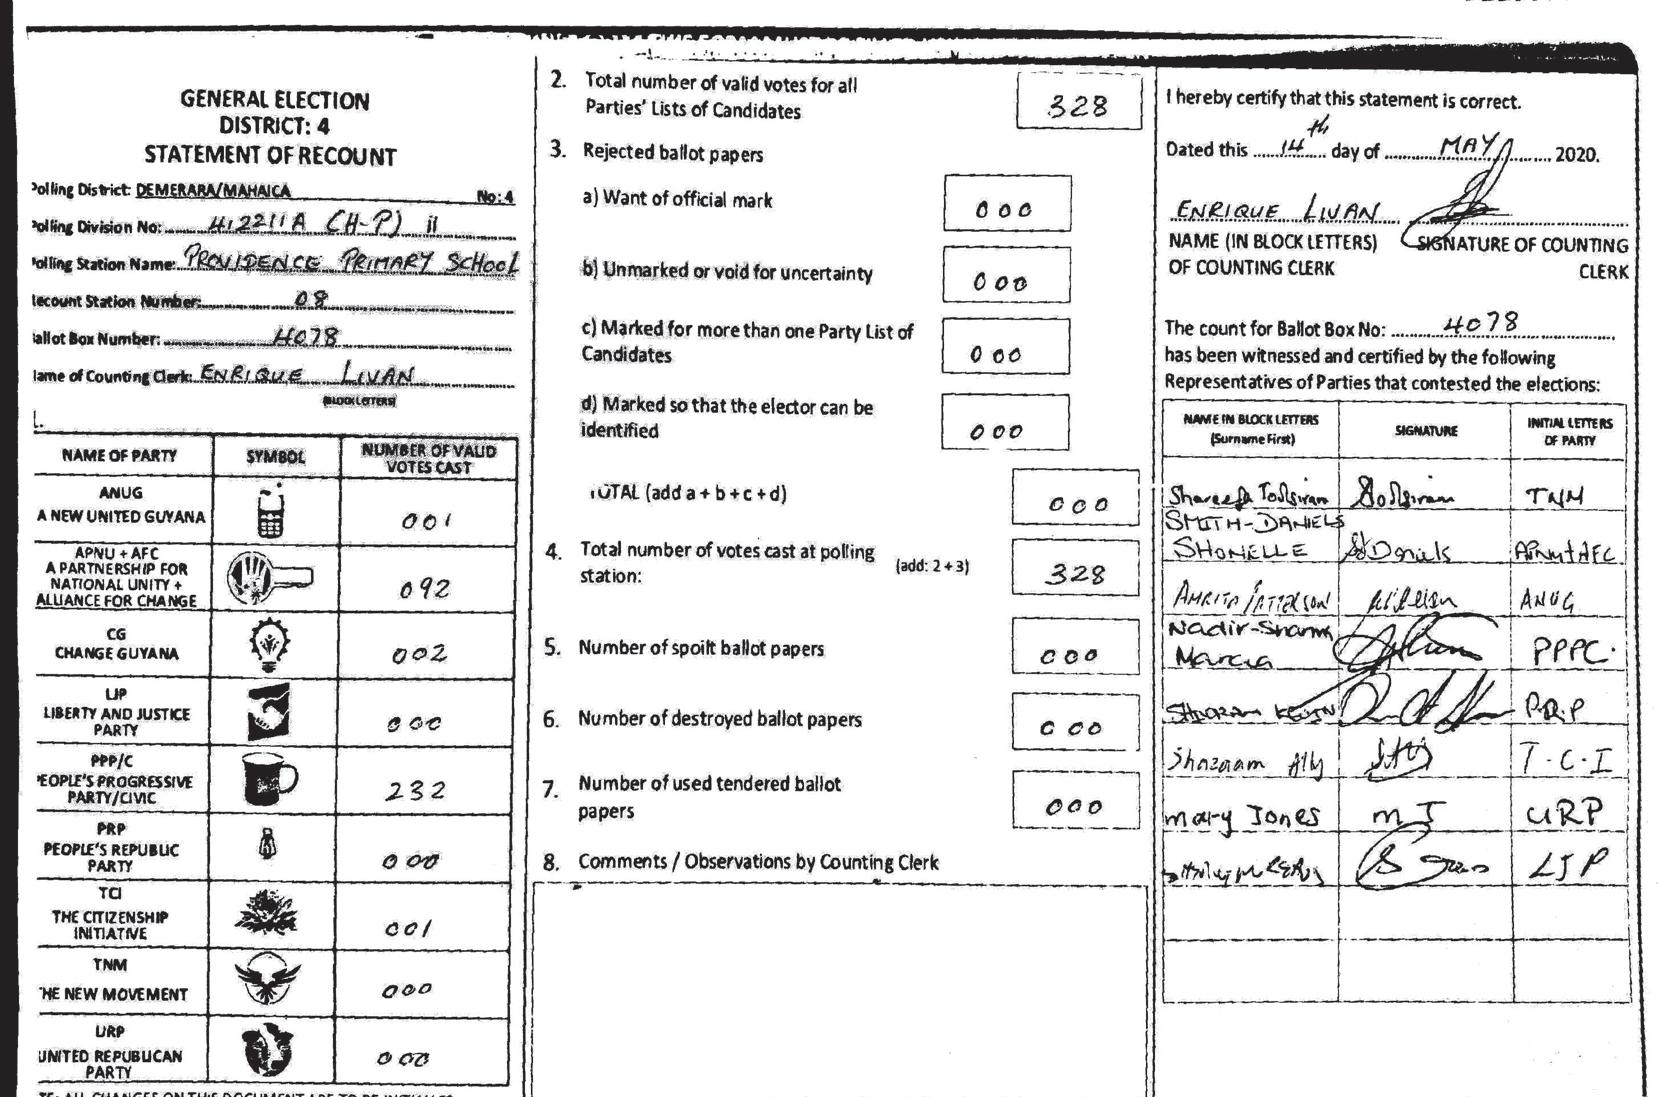 GENERAL ELECTION
DISTRICT: 4
STATEMENT OF RECOUNT
olling District: DEMERARA/MAHAICA No: 4
olling Division No: 412211A (H-P) ii
olling Station Name: PROVIDENCE PRIMARY SCHOOL
ecount Station Number: 08
allot Box Number: 4078
ame of Counting Clerk: ENRIQUE LIVAN
(BLOCK LETTERS)
NAME OF PARTY SYMBOL NUMBER OF VALID VOTES CAST
ANUG
A NEW UNITED GUYANA 001
APNU + AFC
A PARTNERSHIP FOR
NATIONAL UNITY +
ALLIANCE FOR CHANGE 092
CG
CHANGE GUYANA 002
LJP
LIBERTY AND JUSTICE
PARTY 000
PPP/C
EOPLE'S PROGRESSIVE
PARTY/CIVIC 232
PRP
PEOPLE'S REPUBLIC
PARTY 000
TCI
THE CITIZENSHIP
INITIATIVE 001
TNM
HE NEW MOVEMENT 000
URP
UNITED REPUBLICAN
PARTY 000
2. Total number of valid votes for all
Parties' Lists of Candidates 328
3. Rejected ballot papers
a) Want of official mark 000
b) Unmarked or void for uncertainty 000
c) Marked for more than one Party List of
Candidates 000
d) Marked so that the elector can be
identified 000
TOTAL (add a + b + c + d) 000
4. Total number of votes cast at polling
station: (add: 2 + 3) 328
5. Number of spoilt ballot papers 000
6. Number of destroyed ballot papers 000
7. Number of used tendered ballot
papers 000
8. Comments / Observations by Counting Clerk
I hereby certify that this statement is correct.
Dated this 14th day of MAY 2020.
ENRIQUE LIVAN
NAME (IN BLOCK LETTERS) SIGNATURE OF COUNTING
OF COUNTING CLERK CLERK
The count for Ballot Box No: 4078
has been witnessed and certified by the following
Representatives of Parties that contested the elections:
NAME IN BLOCK LETTERS SIGNATURE INITIAL LETTERS
(Surname First) OF PARTY
Shareefa Toolsiram TNM
SMITH-DANIELS
SHONELLE SDaniels APNU+AFC
AMRITA PATTERSON ANUG
Nadir-Sharma
Marcia PPPC.
KEVIN P.R.P
Shazaam Ally T.C.I
Mary Jones M J URP
LJP